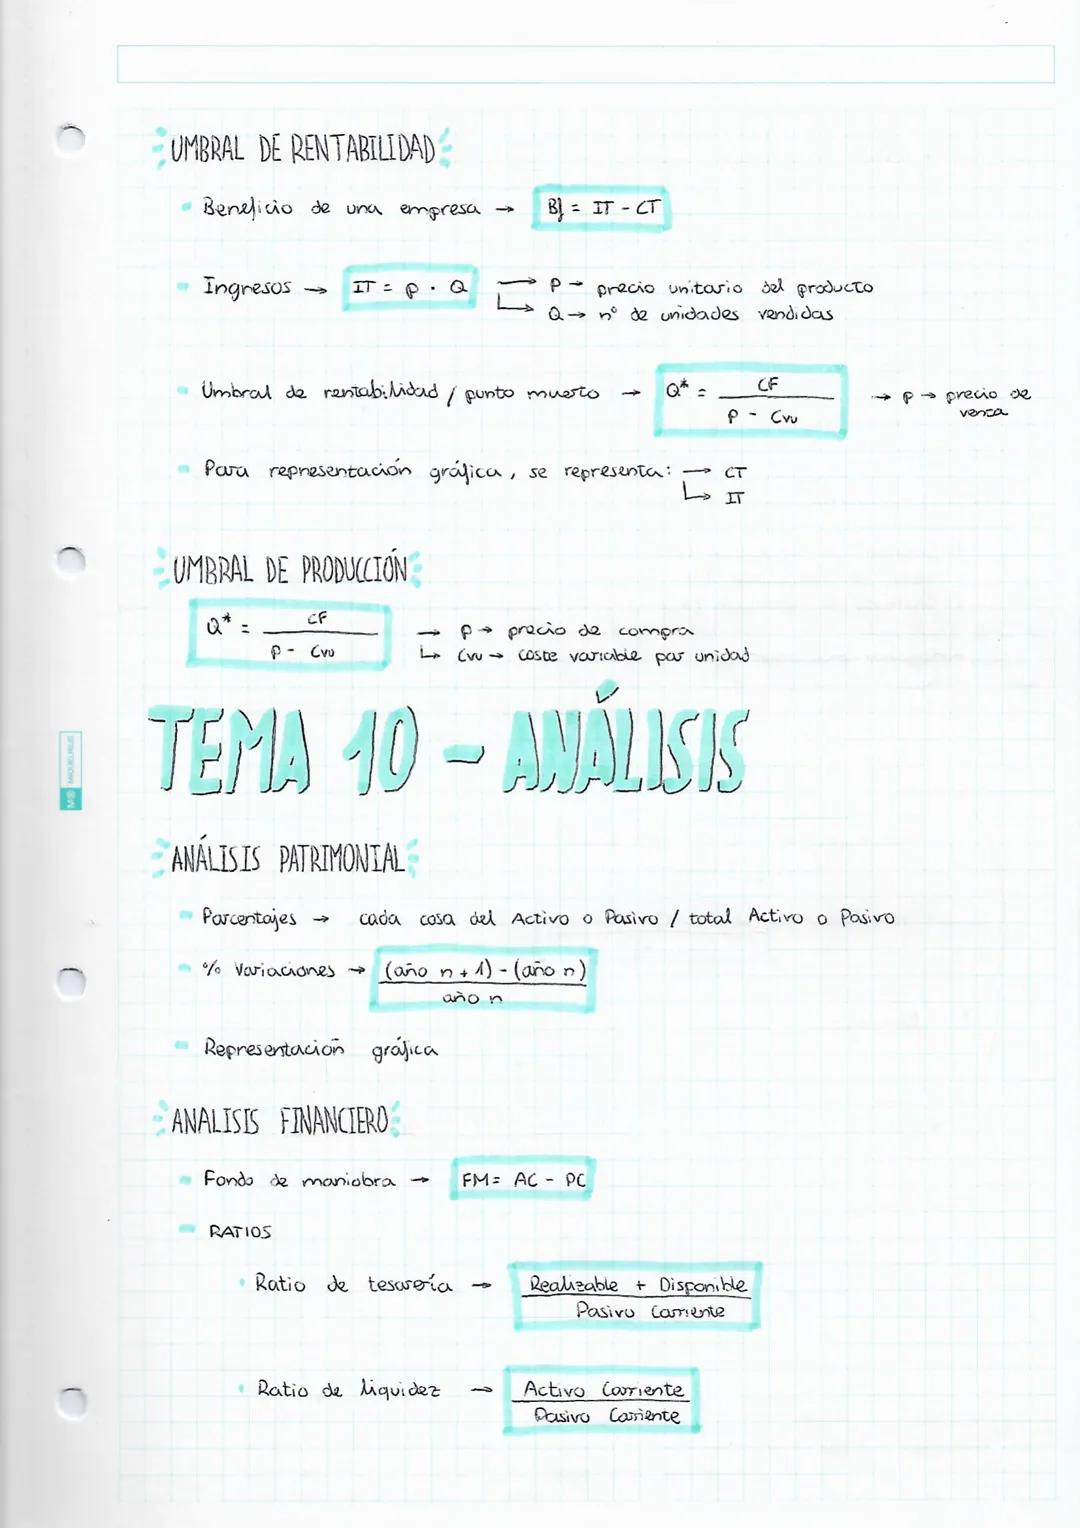 UMBRAL DE RENTABILIDAD
Beneficio de una empresa → Bf = IT - CT
Ingresos → IT = p · Q → P → precio unitario del producto
↳ Q → nº de unidades vendidas
Umbral de rentabilidad / punto muerto → Q* = CF → p → precio de
P - Cvu venta
Para representación gráfica, se representa: → CT
↳ IT
UMBRAL DE PRODUCCIÓN
Q* = CF → p → precio de compra
P - Cvu ↳ Cvu → coste variable por unidad
TEMA 10 - ANÁLISIS
MIQUELRIUS
ANÁLISIS PATRIMONIAL
Porcentajes → cada cosa del Activo o Pasivo / total Activo o Pasivo
% Variaciones → (año n + 1) - (año n)
año n
Representación gráfica
ANALISIS FINANCIERO
Fondo de maniobra → FM = AC - PC
RATIOS
Ratio de tesorería → Realizable + Disponible
Pasivo Corriente
Ratio de liquidez → Activo Corriente
Pasivo Corriente